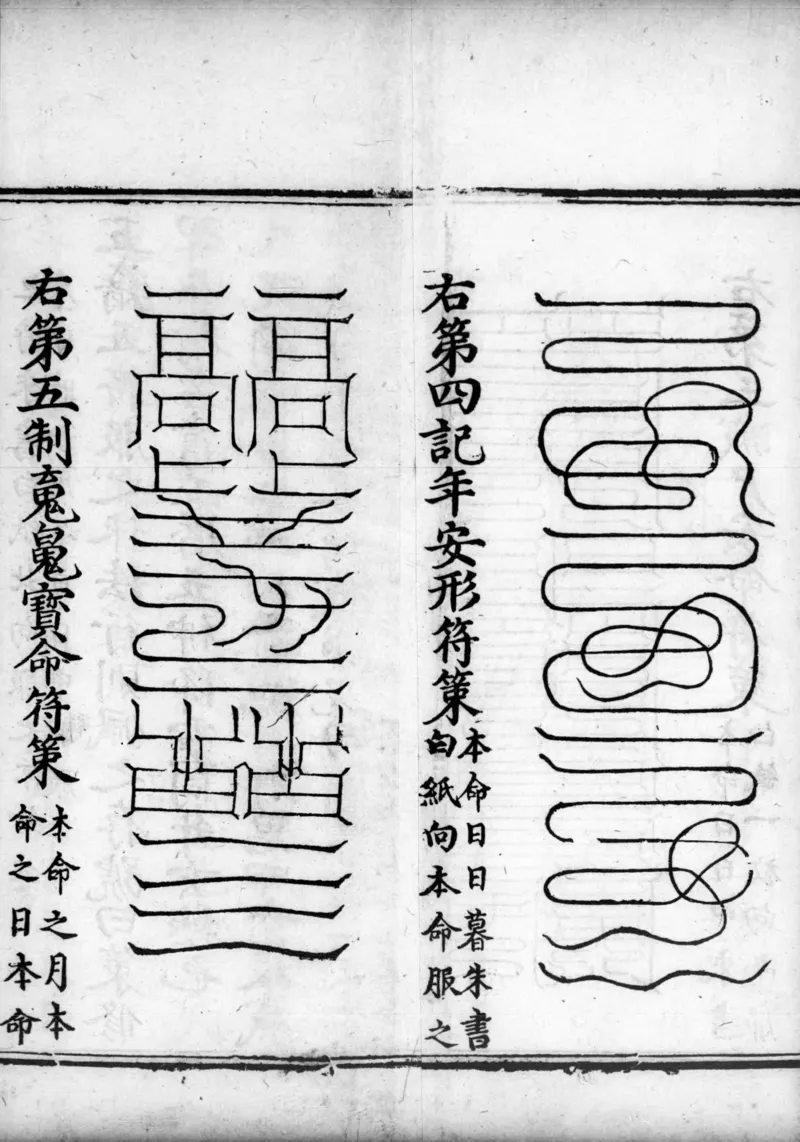 右第四記年安形符策
本命日日暮朱書
白紙向本命服之
右第五制魂魄寶命符策
本命之月本
命之日本命